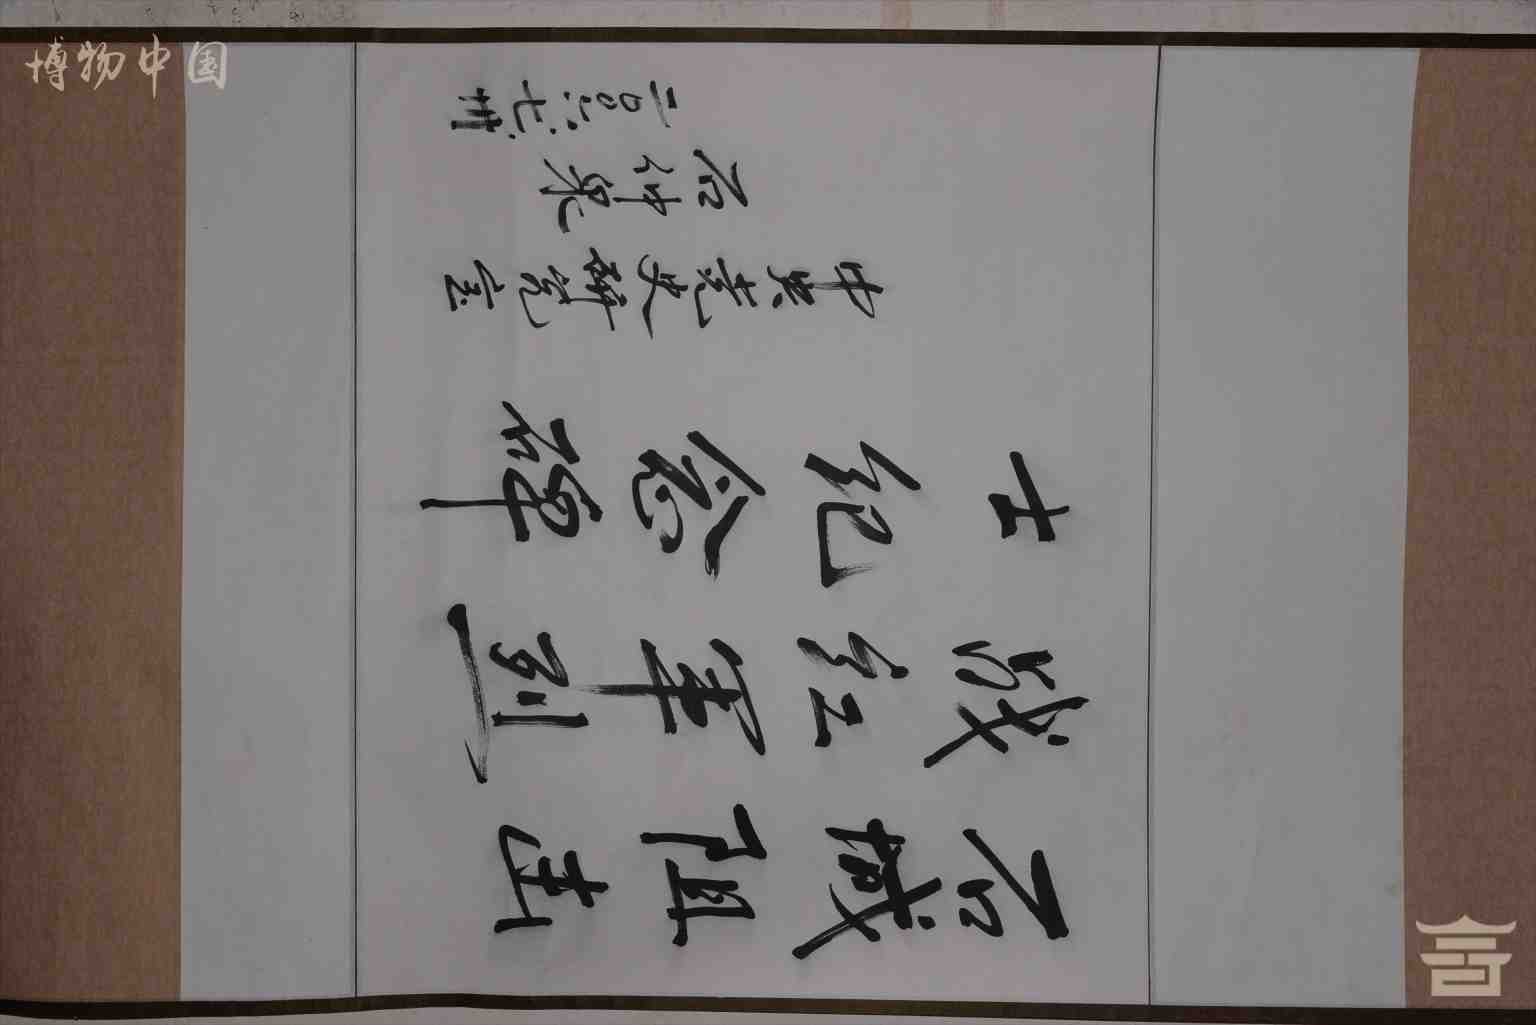 石城阻击
战红军烈
士纪念碑
中央党史研究室
石仲泉
二〇〇 七
博物中国